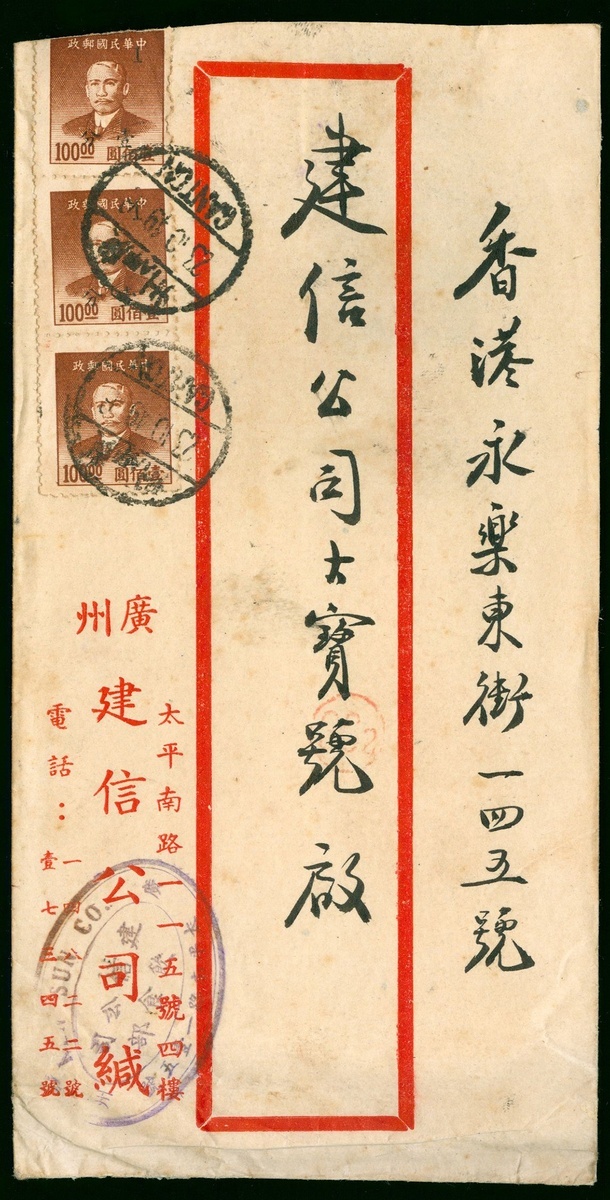 香港永樂東街一四五號
建信公司大寶號 啟
中華民國郵政
100.00
壹佰圓
中華民國郵政
100.00
壹佰圓
中華民國郵政
100.00
壹佰圓
CANTON
廣州
太平南路一一五號四樓
建信公司緘
電話：
壹七三四五號
SUN CO.